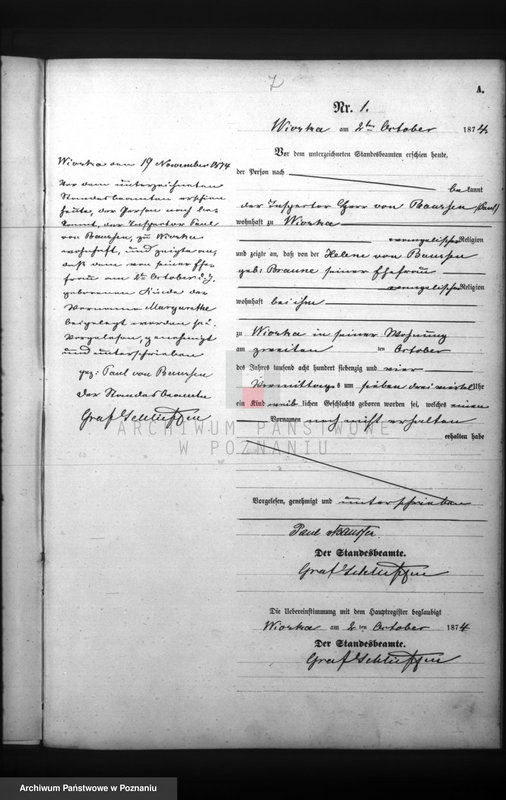 7
A.
Nr. 1.
Wioska am 2ten October 1874
Vor dem unterzeichneten Standesbeamten erschien heute,
der Person nach
bekannt
der Inspector Herr von Baursen (Paul)
wohnhaft zu Wioska
evangelischer Religion
und zeigte an, daß von der Helene von Baursen
geb: Braune seiner Ehefrau
evangelischer Religion
wohnhaft bei ihm
zu Wioska in seiner Wohnung
am zweiten ten October
des Jahres tausend acht hundert siebenzig und vier
Vormittags um sieben drei viertel Uhr
ein Kind weiblichen Geschlechts geboren worden sei, welches einen
Vornamen noch nicht erhalten
erhalten habe
Vorgelesen, genehmigt und unterschrieben
Paul
Der Standesbeamte.
Graf Schlieffen
Die Uebereinstimmung mit dem Hauptregister beglaubigt
Wioska am 2 ten October 1874
Der Standesbeamte.
Graf Schlieffen
Wioska am 19 November 1874
Vor dem unterzeichneten
Standesbeamten erschien
heute, der Person nach be-
kannt, der Inspector Paul
von Baursen, zu Wioska
wohnhaft, und zeigte an,
daß dem von seiner Ehe-
frau am 2ten October d. J.
geborenen Kinde der
Vorname Margarethe
beigelegt worden sei.
Vorgelesen, genehmigt
und unterschrieben
gez: Paul von Baursen
Der Standesbeamte
Graf Schlieffen
ARCHIWUM PAŃSTWOWE
W POZNANIU
Archiwum Państwowe w Poznaniu